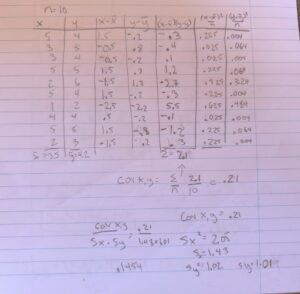 n=10
x y x-x̄ y-ȳ (x-x̄)(y-ȳ) (x-x̄)² (y-ȳ)²
5 4 1.5 -.2 -.3 .225 .004
3 -0.5 .8 -.4 .025 .064
3 4 -0.5 -.2 .1 .025 .004
5 5 1.5 1.2 .225
6 -1.5 -2.7 .225 .324
2 4 -1.5 -.2 .3 .225 .004
1 2 -2.5 -2.2 5.5 .625 .484
4 4 .5 -.2 -.1 .025 .004
5 1.5 -1.2 .225 .064
2 -1.5 .225
x̄=3.5 ȳ=4.2 Σ = 2.1
Cov x,y = Σ/n 2.1/10 = .21
Cov x,y / Sx · Sy = .21 / 1.43×1.01
Cov x,y = .21
Sx² = 2.05
Sx=1.43
.1454 Sy²=1.02 Sy=1.01